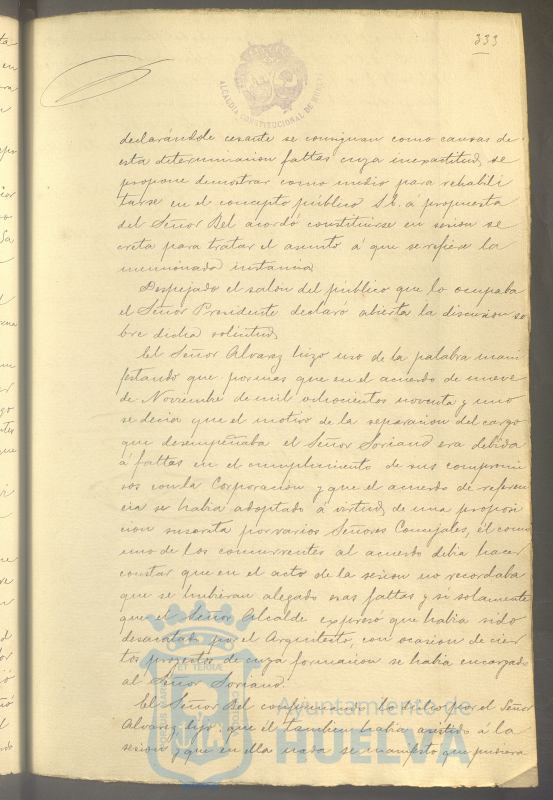 333
ALCALDIA CONSTITUCIONAL DE HUELVA
declarándole cesante se consignan como causas de
esta determinacion faltas cuya inexactitud se
propone demostrar como medio para rehabili
tarse en el concepto público S.E. á propuesta
del Señor Bel acordó constituirse en sesion se
creta para tratar el asunto á que se refiere la
mencionada instancia
Despejado el salón del público que lo ocupaba
el Señor Presidente declaró abierta la discusion so
bre dicha solicitud
El Señor Alvarez hizo uso de la palabra mani
festando que por mas que en el acuerdo de nueve
de Noviembre de mil ochocientos noventa y uno
se decia que el motivo de la separacion del cargo
que desempeñaba el Señor Soriano era debida
á faltas en el cumplimiento de sus compromi
sos con la Corporacion y que el acuerdo de referen
cia se habia adoptado á virtud de una proposi
cion suscrita por varios Señores Concejales, él como
uno de los concurrentes al acuerdo debia hacer
constar que en el acto de la sesion no recordaba
que se hubieran alegado esas faltas y si solamente
que el Señor Alcalde expresó que habia sido
desacatado por el Arquitecto, con ocasion de cier
tos proyectos de cuya formacion se habia encargado
al Señor Soriano
El Señor Bel confirmando lo dicho por el Señor
Alvarez dijo que él tambien habia asistido á la
sesion y que en ella nada se manifestó que pudiera
Ayuntamiento de
HUELVA